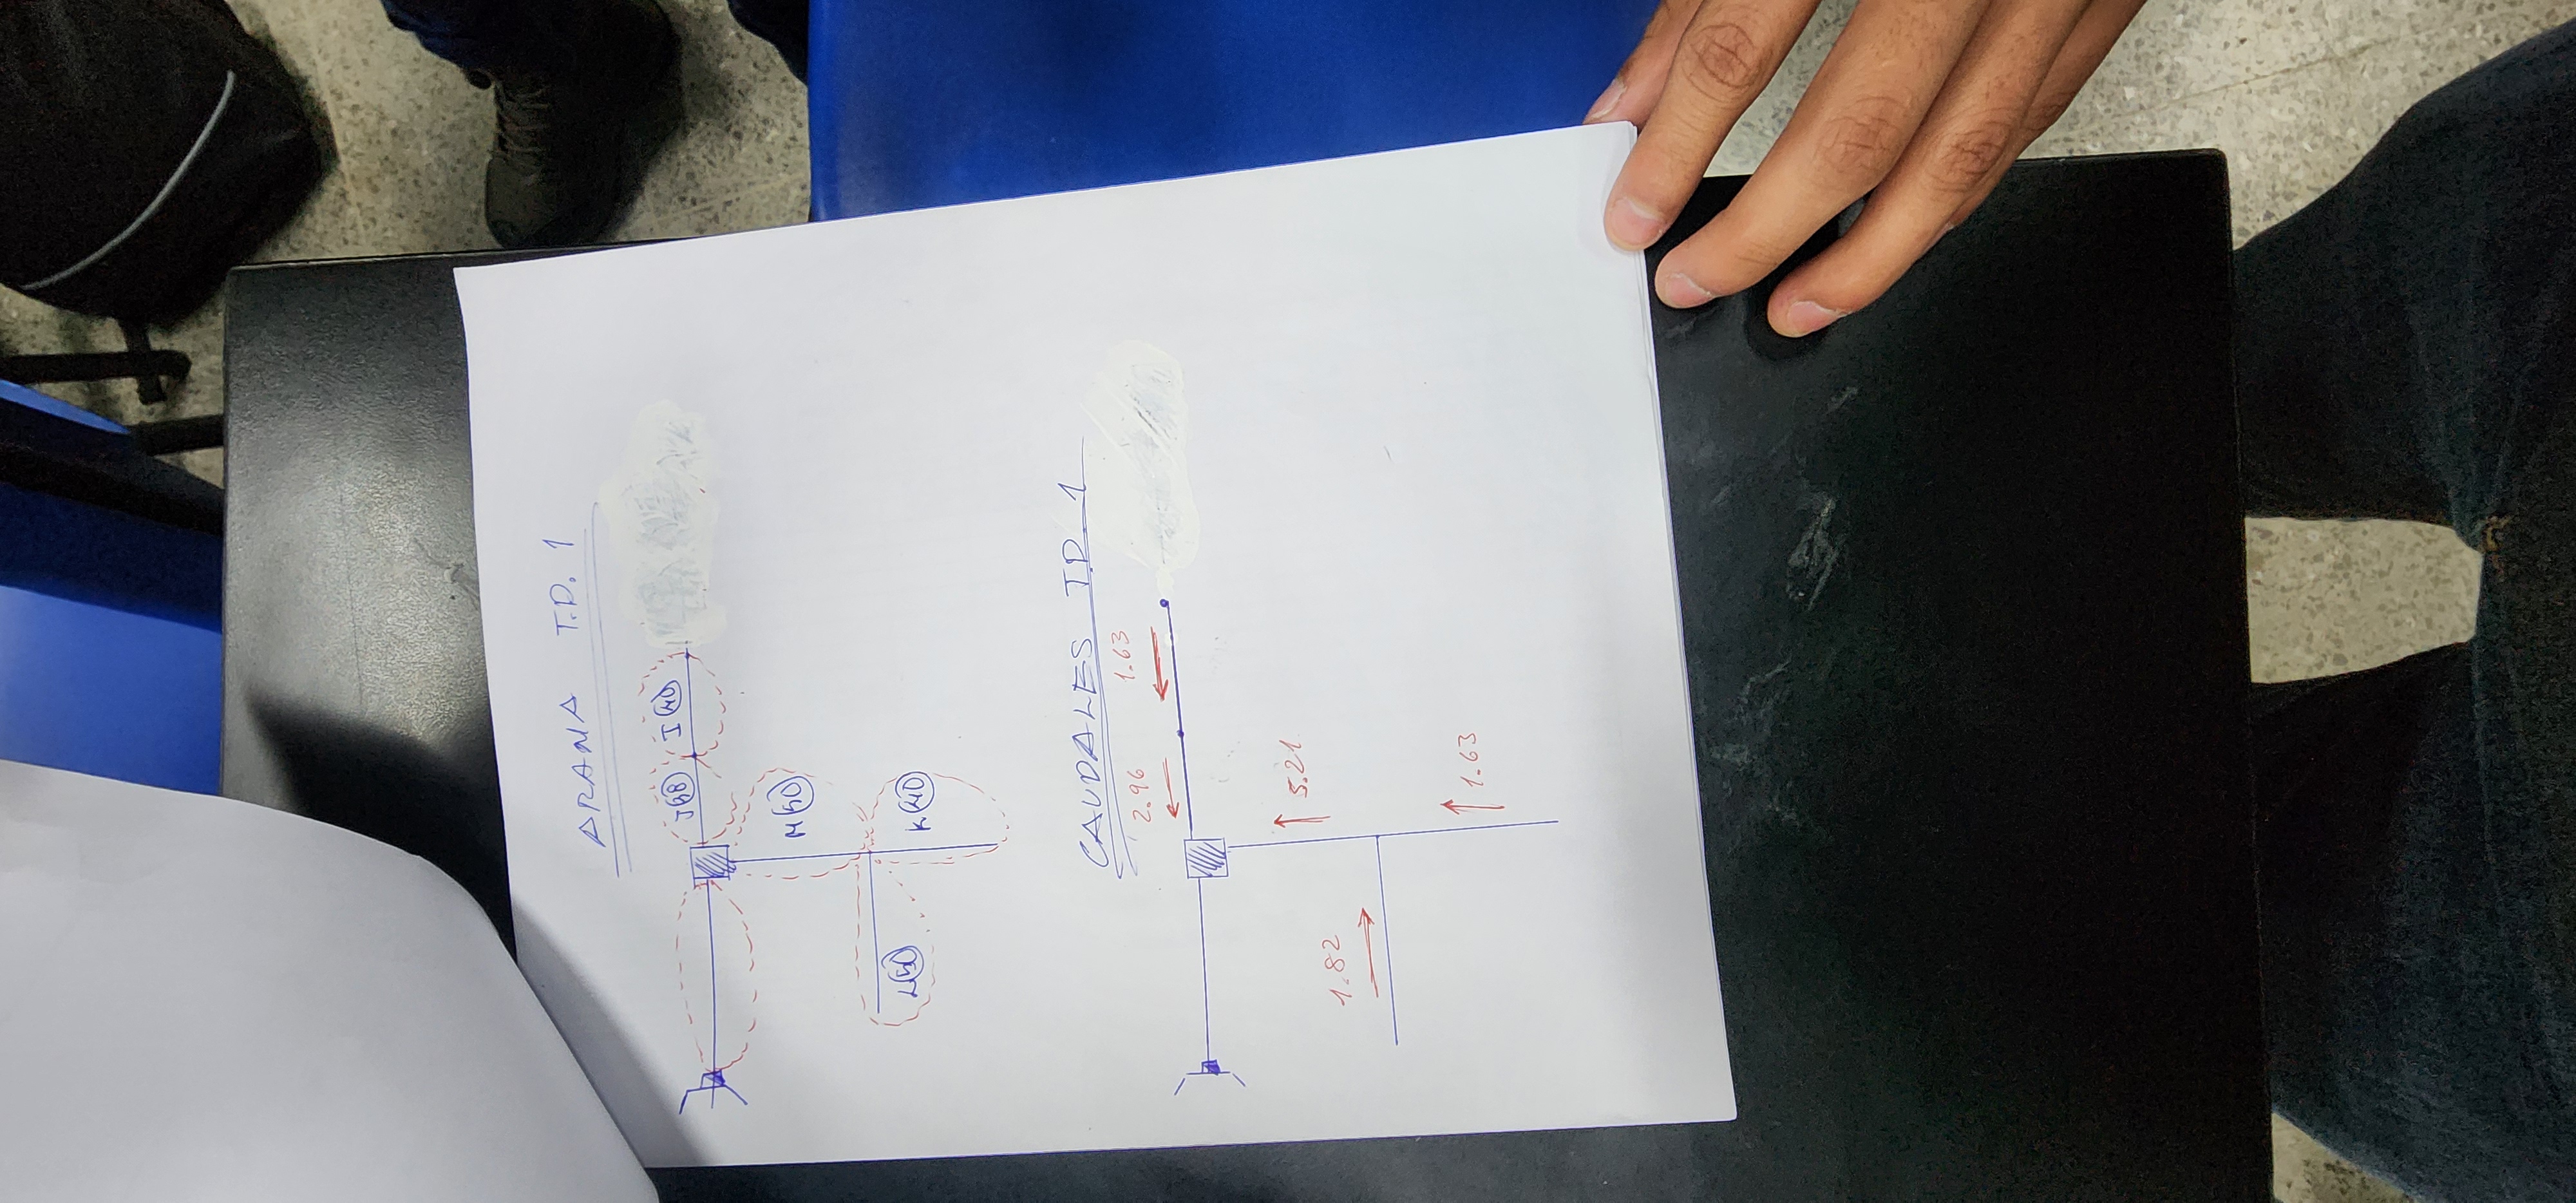 ARAÑA T.D. 1
J 38 I 40
M 50
L 50 K 40
CAUDALES T.D. 1
2.96 1.63
5.21
1.82
1.63